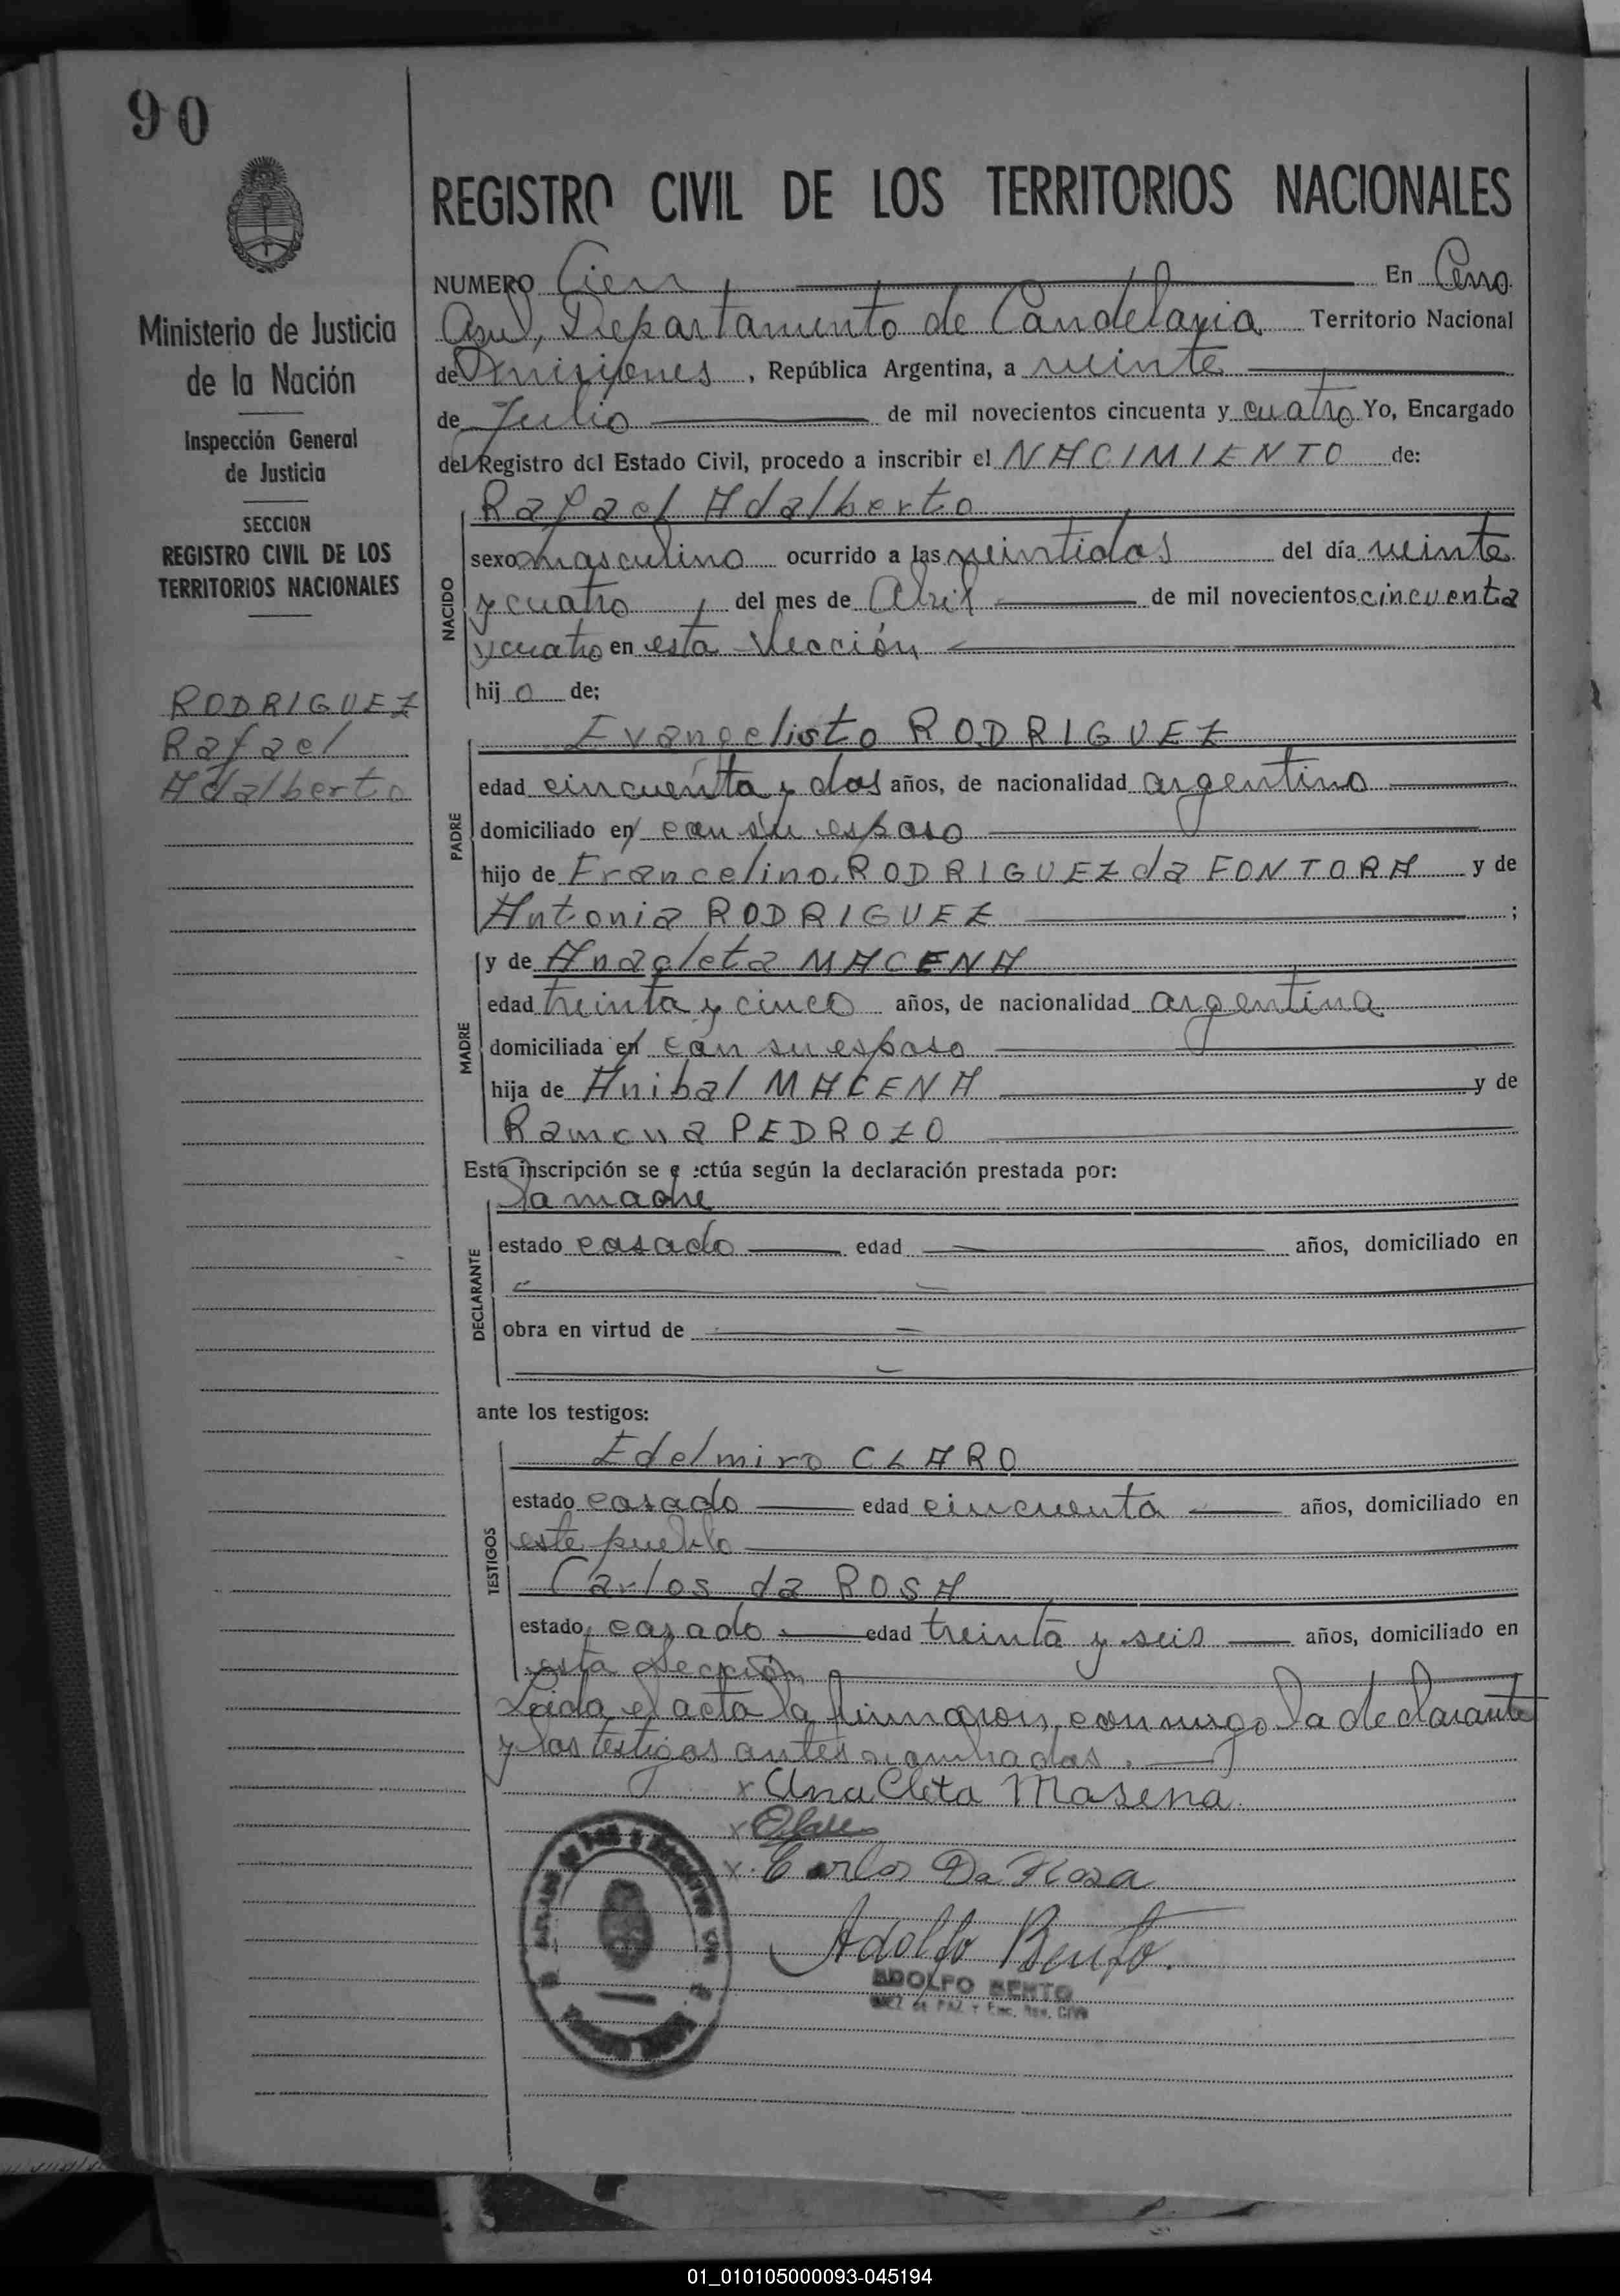 90
REGISTRO CIVIL DE LOS TERRITORIOS NACIONALES
Ministerio de Justicia
de la Nación
Inspección General
de Justicia
SECCION
REGISTRO CIVIL DE LOS
TERRITORIOS NACIONALES
RODRIGUEZ
Rafael
Adalberto
NUMERO Cien En Cerro
Azul, Departamento de Candelaria Territorio Nacional
de Misiones, República Argentina, a veinte
de Julio de mil novecientos cincuenta y cuatro Yo, Encargado
del Registro del Estado Civil, procedo a inscribir el NACIMIENTO de:
Rafael Adalberto
NACIDO
sexo masculino ocurrido a las veintidos del día veinte
y cuatro del mes de Abril de mil novecientos cincuenta
y cuatro en esta Sección
hijo de:
PADRE
Evangelisto RODRIGUEZ
edad cincuenta y dos años, de nacionalidad argentino
domiciliado en con su esposo
hijo de Francelino RODRIGUEZ da FONTORA y de
Antonia RODRIGUEZ ;
MADRE
y de Anacleta MACENA
edad treinta y cinco años, de nacionalidad argentina
domiciliada en con su esposo
hija de Anibal MACENA y de
Ramona PEDROZO
Esta inscripción se e ectúa según la declaración prestada por:
DECLARANTE
La madre
estado casado edad años, domiciliado en
obra en virtud de
ante los testigos:
TESTIGOS
Edelmiro CLARO
estado casado edad cincuenta años, domiciliado en
este pueblo
Carlos da ROSA
estado casado edad treinta y seis años, domiciliado en
esta Sección
Leida el acta la firmaron conmigo la declarante
y los testigos antes nombrados.
x Ana Cleta Masena
x
x Carlos Da Roza
Adolfo Bento.
ADOLFO BENTO
JUEZ de PAZ y Enc. Reg. Civil
01_010105000093-045194